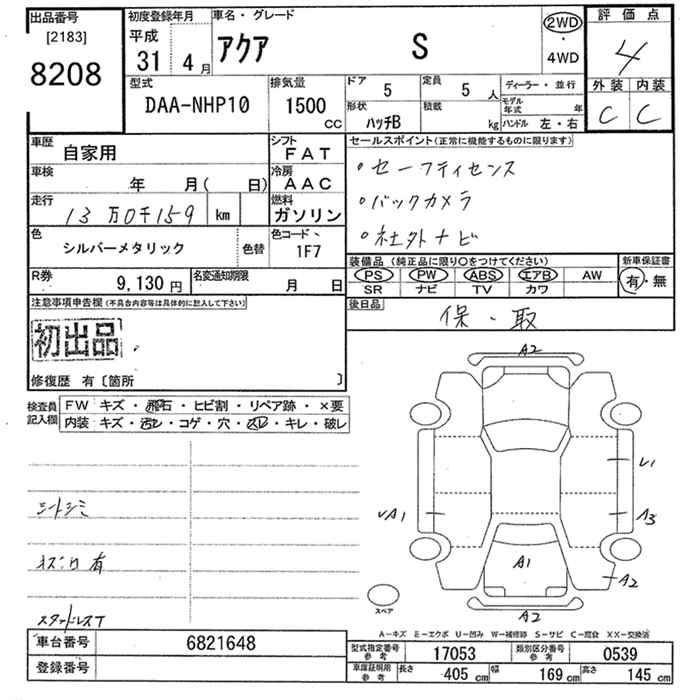 出品番号
[2183]
8208
初度登録年月
平成
31 4月
車名・グレード
アクア S
2WD
・
4WD
評価点
4
外装 内装
C C
型式
DAA-NHP10
排気量
1500
CC
ドア 5
定員 5 人
形状 ハッチB
積載 kg
ディーラー・並行
モデル年式 年
ハンドル 左・右
車歴
自家用
シフト
FAT
車検
年 月( 日)
冷房
AAC
走行
13万0千159 km
燃料
ガソリン
色
シルバーメタリック
色替
色コード
1F7
R券
9,130円
名変通知期限
月 日
セールスポイント(正常に機能するものに限ります)
・セーフティセンス
・バックカメラ
・社外ナビ
装備品(純正品に限り○をつけてください)
PS PW ABS エアB AW
SR ナビ TV カワ
新車保証書
有・無
後日品
保・取
注意事項申告欄(不具合内容等は具体的に記入して下さい)
初出品
修復歴 有〔箇所 〕
検査員記入欄
FW キズ・飛石・ヒビ割・リペア跡・×要
内装 キズ・汚レ・コゲ・穴・スレ・キレ・破レ
シートシミ
スタッドレスT
A2
U1
VA1
A3
A1
A2
A2
スペア
A-キズ E-エクボ U-凹み W-補修跡 S-サビ C-腐食 XX-交換済
車台番号 6821648
登録番号
型式指定番号参考 17053
類別区分番号参考 0539
車庫証明用参考 長さ 405cm 幅 169cm 高さ 145cm